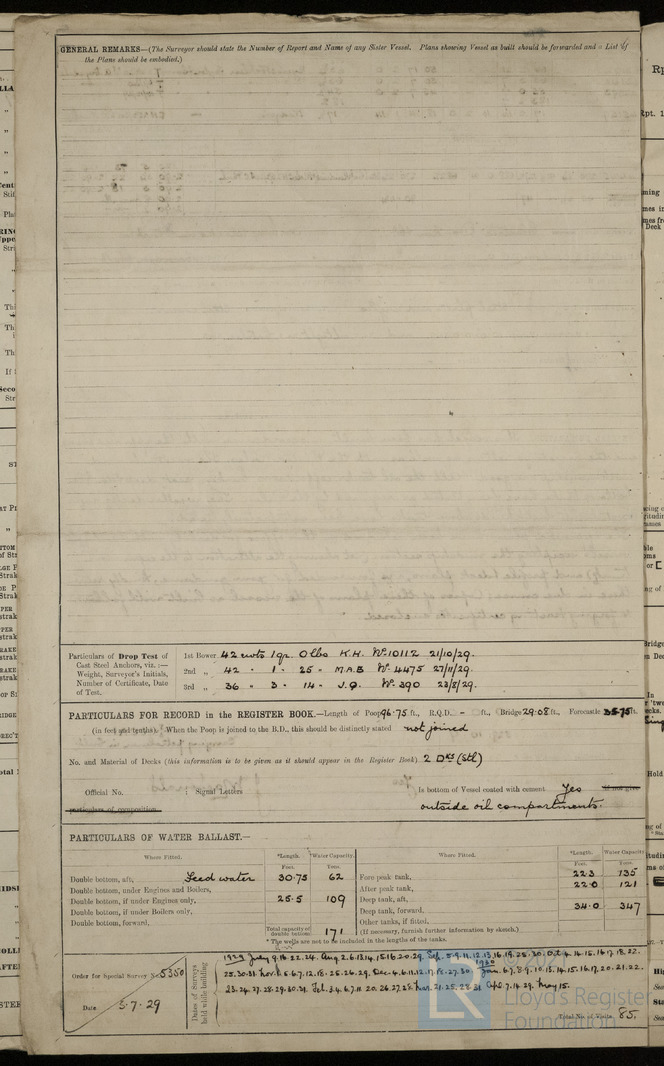 GENERAL REMARKS—(The Surveyor should state the Number of Report and Name of any Sister Vessel. Plans showing Vessel as built should be forwarded and a List of
the Plans should be embodied.)
Particulars of Drop Test of
Cast Steel Anchors, viz.:—
Weight, Surveyor's Initials,
Number of Certificate, Date
of Test.
1st Bower 42 cwts 1 qr. 0 lbs K.H. No. 10112 21/10/29.
2nd „ 42 - 1 - 25 - M.A.B No. 4475 27/11/29.
3rd „ 36 - 3 - 14 - J.Q. No. 390 23/8/29.
PARTICULARS FOR RECORD in the REGISTER BOOK.—Length of Poop 96.75 ft., R.Q.D. - ft., Bridge 29.08 ft., Forecastle 35.75 ft.
(in feet and tenths). When the Poop is joined to the B.D., this should be distinctly stated not joined
No. and Material of Decks (this information is to be given as it should appear in the Register Book) 2 Dks (Stl)
Official No. ; Signal Letters Is bottom of Vessel coated with cement Yes if not give
particulars of composition. outside oil compartments.
PARTICULARS OF WATER BALLAST.—
Where Fitted. *Length. Water Capacity. Where Fitted. *Length. Water Capacity.
Feet. Tons. Feet. Tons.
Double bottom, aft, Feed water 30.75 62 Fore peak tank, 22.3 135
Double bottom, under Engines and Boilers, After peak tank, 22.0 121
Double bottom, if under Engines only, 25.5 109 Deep tank, aft,
Double bottom, if under Boilers only, Deep tank, forward, 34.0 347
Double bottom, forward, Other tanks, if fitted,
Total capacity of double bottom 171 (If necessary, furnish further information by sketch.)
* The wells are not to be included in the lengths of the tanks.
Order for Special Survey No. 5350
Date 5.7.29
Dates of Surveys held while building
1929 July 9.16.22.24. Aug 2.6.13.14.15.16.20.29. Sep. 5.9.11.12.13.16.19.25.30. Oct 4.14.15.16.17.18.22.
25.30.31 Nov. 5.6.7.12.18.25.26.29. Dec. 4.6.11.12.17.18.27.30. 1930 Jan. 6.7.8.9.10.13.14.15.16.17.20.21.22.
23.24.27.28.29.30.31. Feb. 3.4.6.7.11.20.26.27.28. Mar. 21.25.28.31 Apl. 7.14.29. May 15.
Total No. of Visits 85.
LR
Lloyd's Register
Foundation